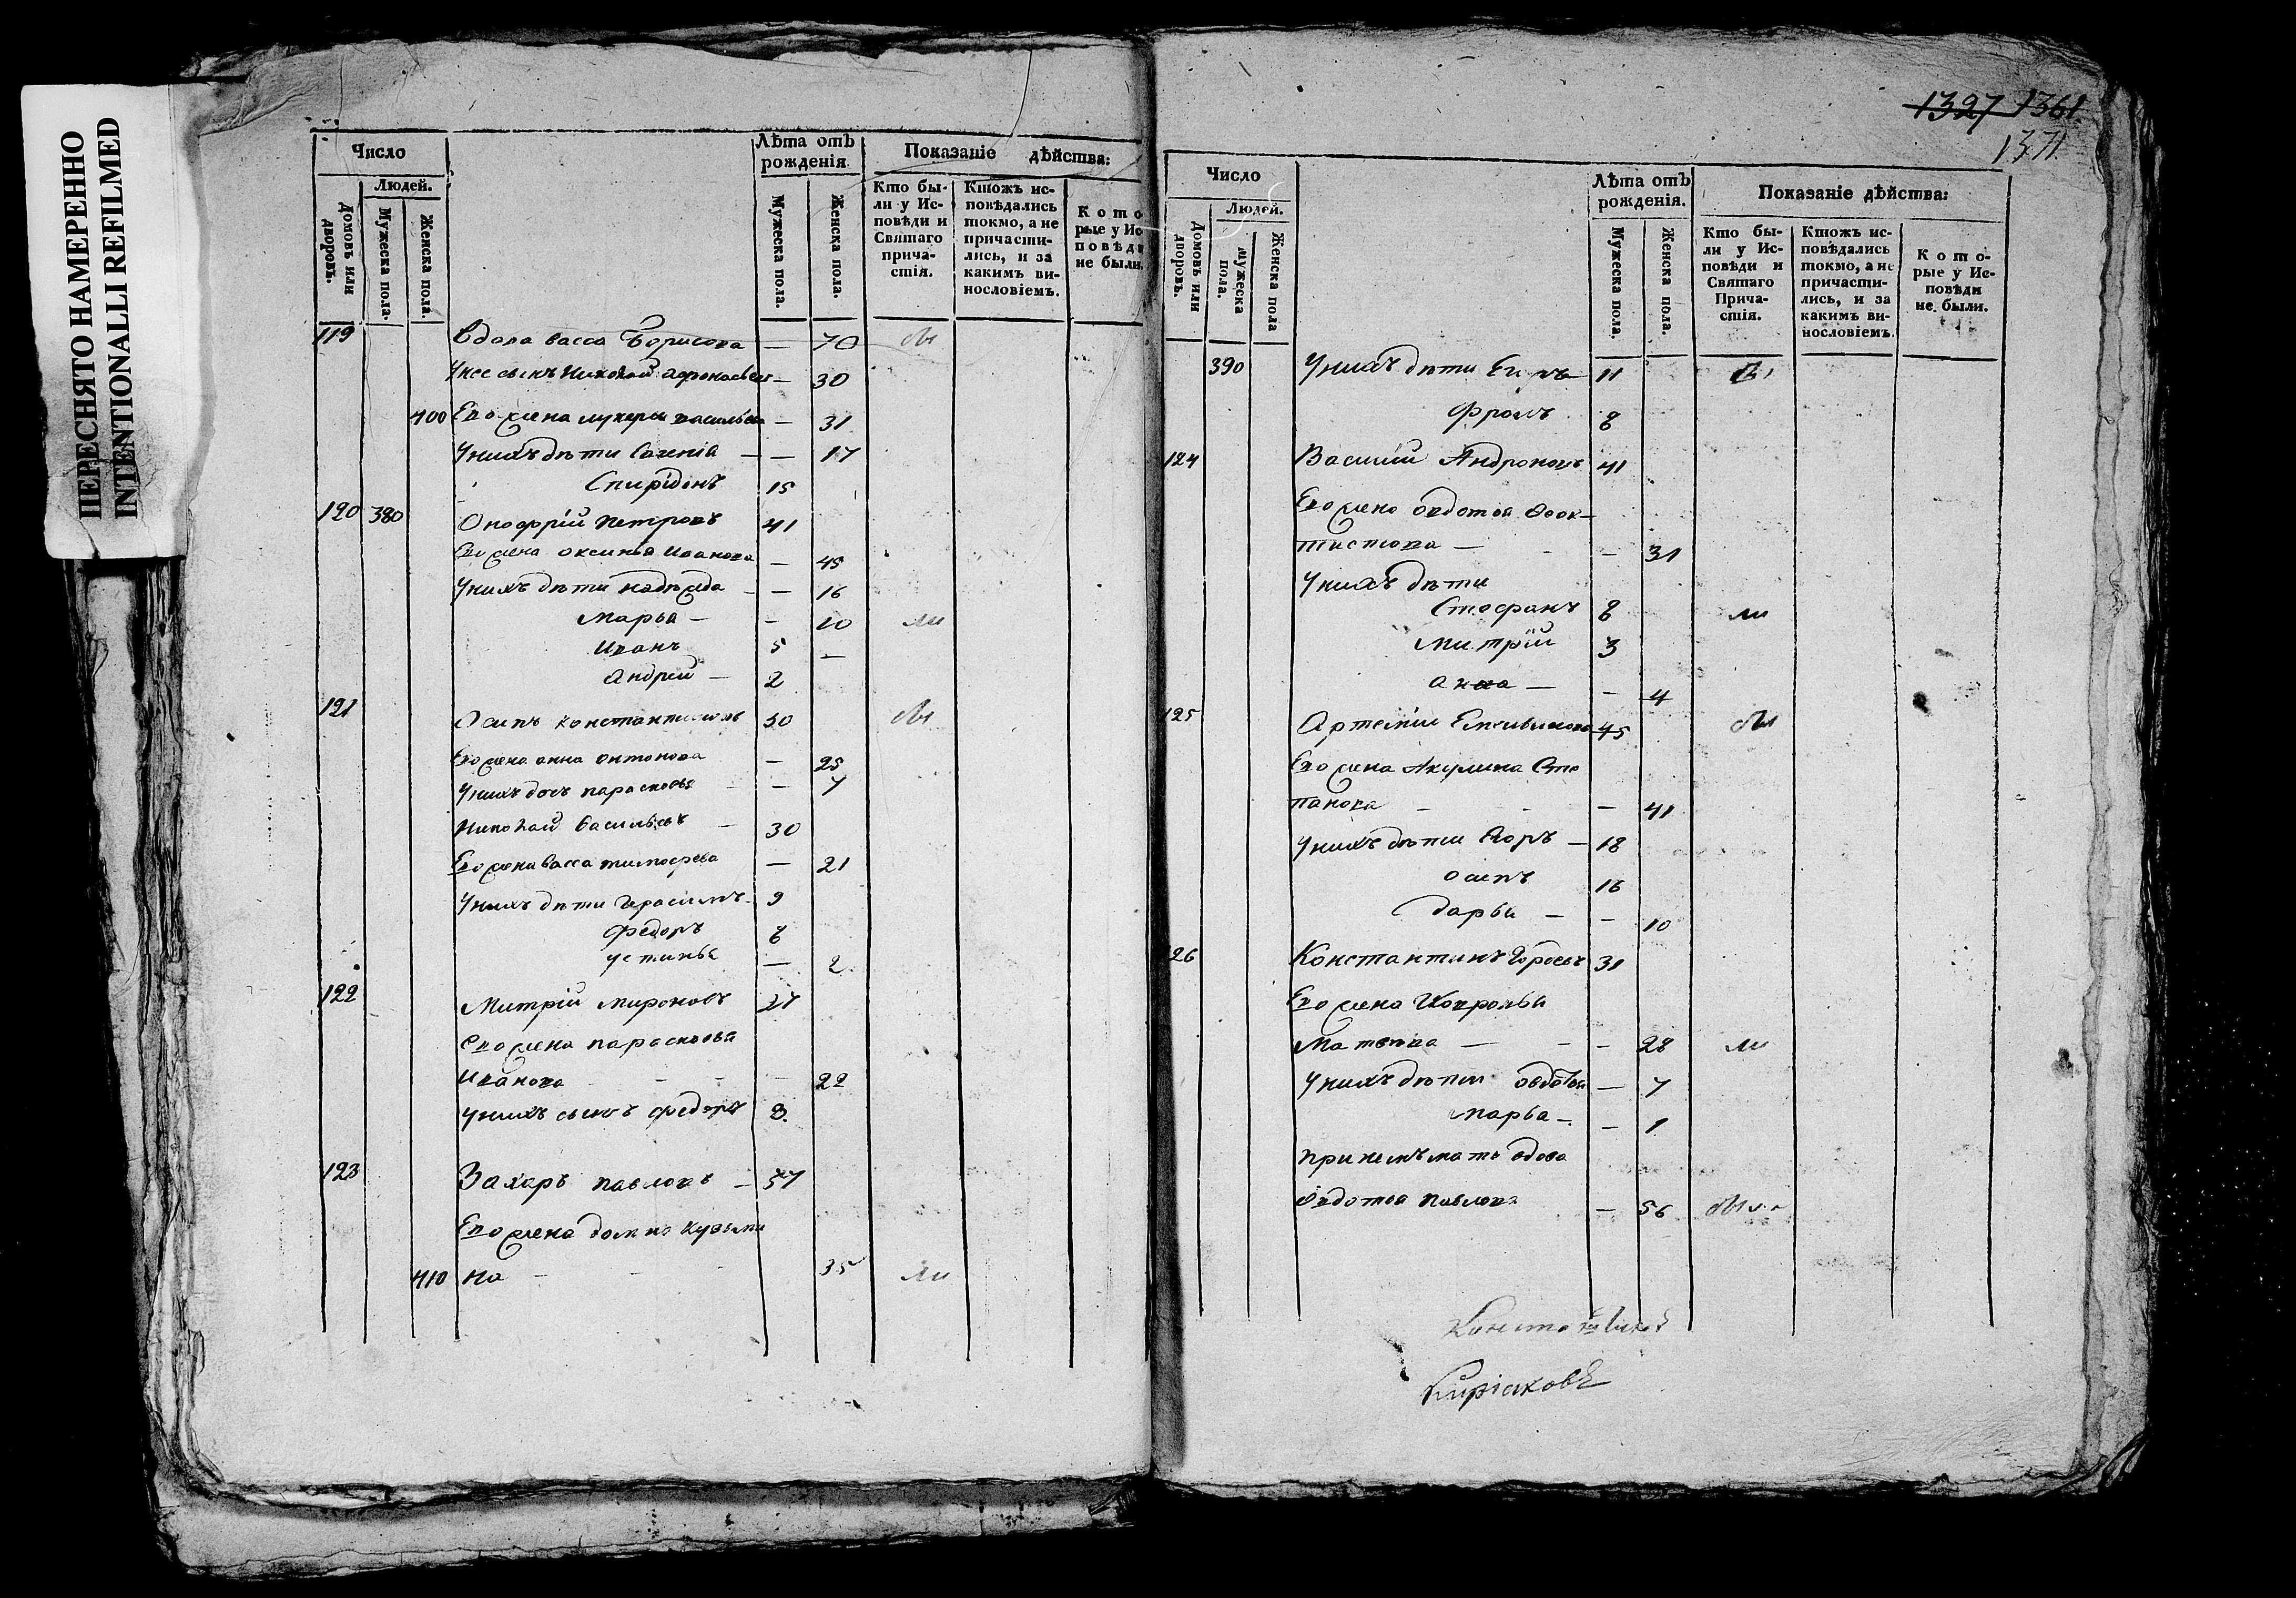 ПЕРЕСНЯТО НАМЕРЕННО
INTENTIONALLI REFILMED
Число
Людей.
Домовъ или дворовъ.
Мужеска пола.
Женска пола.
Лѣта отъ рожденія
Мужеска пола.
Женска пола.
Показаніе дѣйства:
Кто бы-
ли у Ис-
повѣди и
Святаго
прича-
стія.
Ктожъ ис-
повѣдались
токмо, а не
причасти-
лись, и за
какимъ ви-
нословіемъ.
Кото
рые у Ис
повѣди
не были.
119 Вдова васса Борисова — 70 бы
Унее сынъ Николай — 30
400 Его жена васильева — 31
Унихъ дѣти — — 17
Спирідонъ 15
120 380 Онофрій петровъ 41
Его жена оксинья иванова — 45
Унихъ дѣти надежда — — 16
марья — — 10 ли
иванъ 5 —
андрей — 2
121 Осипъ константиновъ 30 бы
Его жена анна онтонова — 25
Унихъ дочь парасковья — — 7
николай васильевъ — 30
Его жена васса тимофеева — 21
Унихъ дѣти герасимъ 9
федоръ 8
устинья — 2
122 Митрій мироновъ 27
Его жена парасковья
иванова — — — 22
Унихъ сынъ федоръ 3
123 Захаръ павловъ — 57
Его жена домна кузьми
410 на — — — 35 ли
1327 1361.
1371.
Число
Людей.
Домовъ или дворовъ.
мужеска пола.
Женска пола
Лѣта отъ рожденія.
Мужеска пола.
Женска пола.
Показаніе дѣйства:
Кто бы-
ли у Ис-
повѣди и
Святаго
Прича-
стія.
Ктожъ ис-
повѣдались
токмо, а не
причасти-
лись, и за
какимъ ви-
нословіемъ.
Кото-
рые у Ис-
повѣди
не были.
390 Унихъ дѣти 11
фролъ 8
124 Василій Андроновъ 41
Его жена овдотья феок-
тистова — — — 31
Унихъ дѣти
Стефанъ 8 ли
митрій 3
анна — — 4
125 Артемій 45 бы
Его жена Акулина Сте
панова — — — 41
Унихъ дѣти — 18
осипъ 16
дарья — — 10
126 Константинъ 31
Его жена
Матвѣва — — — 28 ли
Унихъ дѣти овдотья — 7
марья — — 1
принемъ мать вдова
Овдотья павлова — 56
Киріаковъ